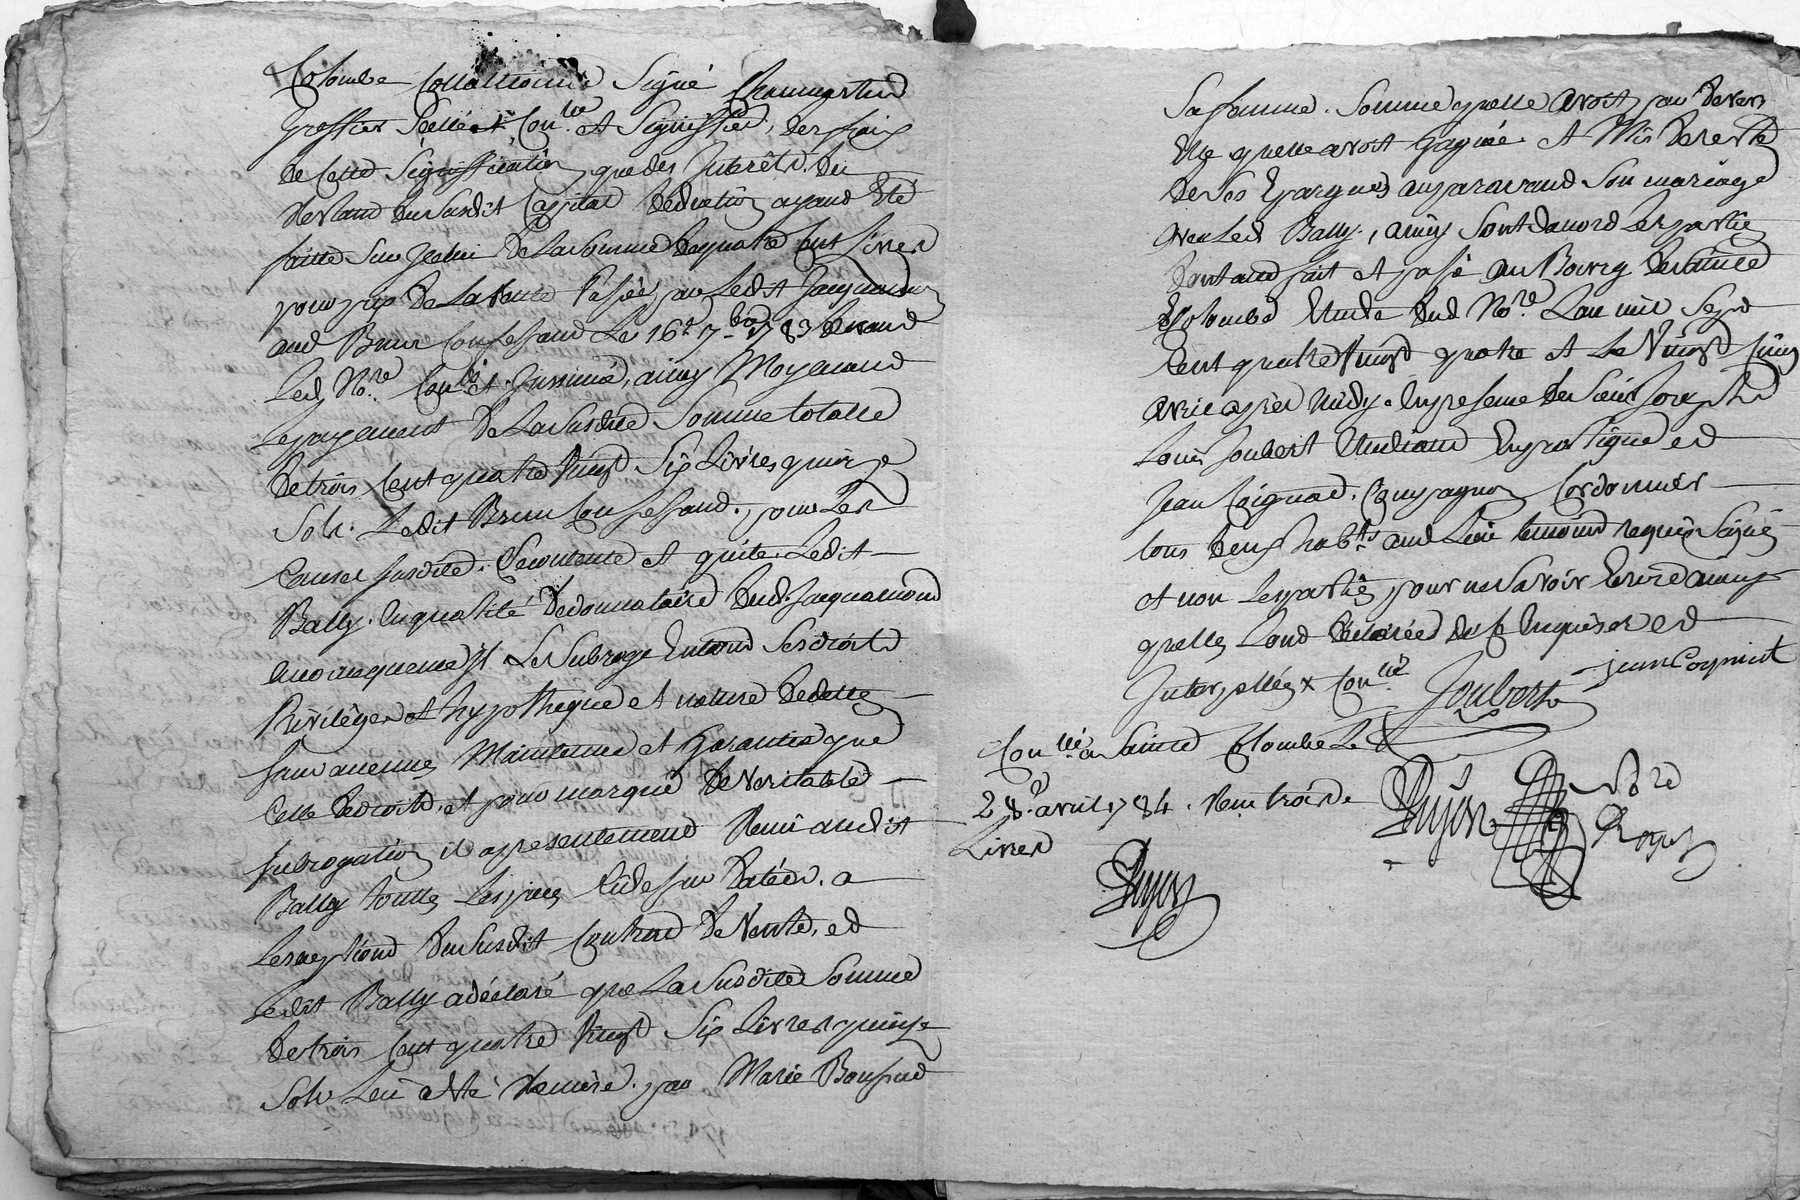 Colombe Collationné Signé Chaumartin
greffier Scellé Con.lé et Signiffié, des fraix
de Cette Signiffication que des Interêts du
restant du Susdit Capital deduction ayant Eté
faitte Sur Jcelui de La Somme de quatre Cent Livres
pour prix de La vente Passée par Ledit Jacquemond
aud Brun Confessant Le 16.e 7.bre 1783 devant
Led No.re Con.lé et Jnsinué, ainsy Moyenant
Le payement de La Susdite Somme totalle
de trois Cent quatre Vingt Six Livres quinze
Sols. Ledit Brun Confessant. pour Les
Causes susdites. Se Contente et quite Ledit
Bally. En qualité de donnataire dud. Jacquemond
au Jl Le Subroge En tous Ses droits
Privilèges et hypotheque et nature de dette
sans aucune Maintenue et Garantie que
Celle de droit, et pour marque de veritable
subrogation il a presentement Remis audit
Bally toutes Les pieces Cy dessus datées. a
L'exception du Susdit Contrat de Vente, et
Ledit Bally a déclaré que La Susdite Somme
de trois Cent quatre Vingt Six Livres quinze
Sols Lui a été Remise. par Marie
Sa femme. Somme qu'elle avoit par devers
Elle qu'elle avoit Gagnée et Mis de reste
de Ses Epargnes auparavant Son mariage
avec Led Bally, ainsy Sont d'acord Les parties
dont acte fait et passé au Bourg de Sainte
Colombe Etude dud No.re L'an mil Sept
Cent quatre Vingt quatre et Le Vingt Cinq
avril après Midy. En presence de Sieur Joseph
Louis Joubert Etudiant En pratique et
Jean Coignet. Compagnon Cordonnier
tous deux hab.ts aud Lieu temoins requis Signés
et non Les parties pour ne Savoir Ecrire ainsy
qu'elles L'ont déclarées de Ce Enquises et
Interpellées Con.lé Joubert jean Coynient
Con.lé a Sainte Colombe Le
28.e avril 1784. Reçu trois
Livres